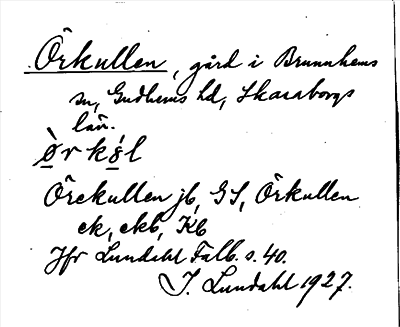 Örkullen, gård i Brunnhems
sn, Gudhems hd, Skaraborgs
län.
ørkøl
Örekullen jb, GS, Örkullen
ek, ekb, Kb
Jfr Lundahl Falb. s. 40.
I. Lundahl 1927.